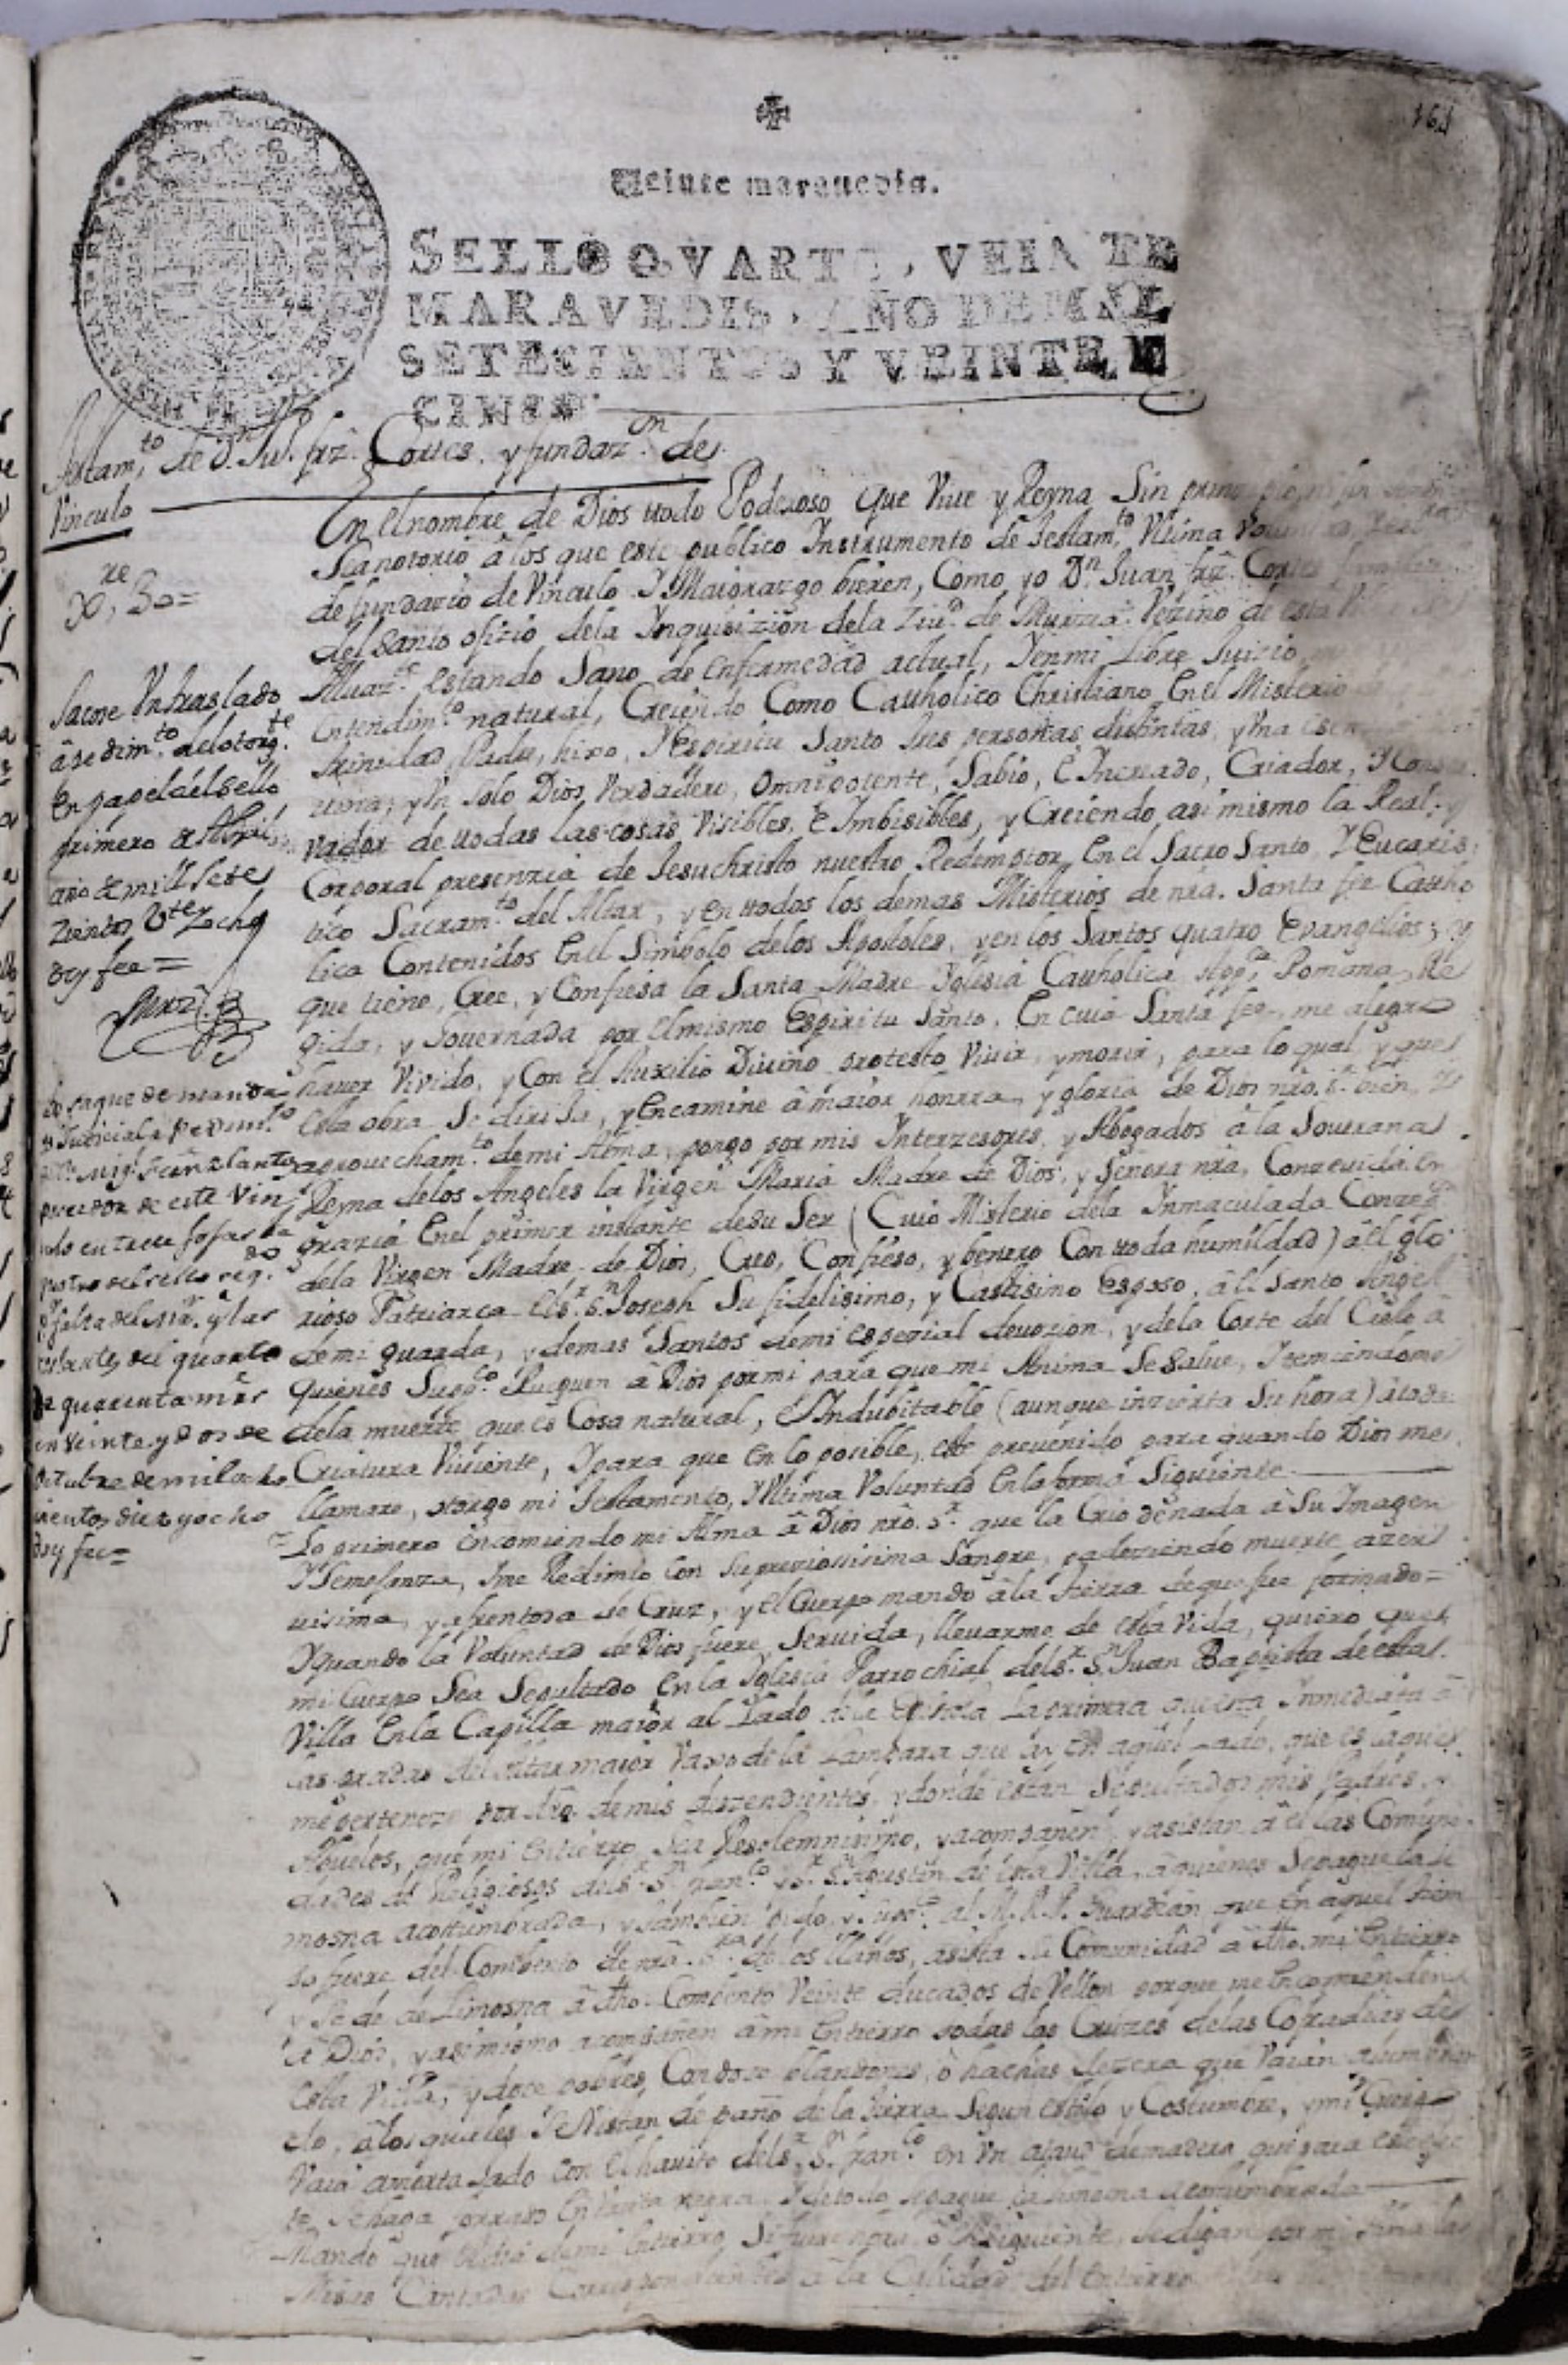 164
Veinte maravedis.
SELLO QVARTO, VEINTE
MARAVEDIS, AÑO DE MIL
SETECIENTOS Y VEINTE Y
CINCO.
Testam.to de D.n Ju.o frz. Cortes, y fundaz.on de
Vinculo
En el nombre de Dios todo Poderoso que Vive y Reyna Sin principio, ni fin
Sea notorio â los que este publico Instrumento de Testam.to Vltima
de fundazió de Vinculo Y Maiorazgo bieren, Como yo D.n Juan frz. Cortes
del Santo ofizio dela Inquisizión dela Ziu.d de Murzia Vezino de esta
Albaz.te estando Sano de enfermedad actual, Y en mi Libre Juicio
entendim.to natural, Creiendo Como Catholico Christiano En el Misterio
trinidad, Padre, hixo, Y Espiritu Santo tres personas distintas, y Vna
y Vn Solo Dios Verdadero, Omnipotente, Sabio, è Increado, Criador, Y
vador de todas las cosas Visibles, è Imbisibles, y Creiendo asi mismo la Real y
Corporal presenzia de Jesuchristo nuestro Redemptor En el Sacro Santo Y Eucaris
tico Sacram.to del Altar, y en todos los demas Misterios de nra. Santa fee Catho
lica Contenidos En el Simbolo delos Apostoles, y en los Santos quatro Evangelios; y
que tiene, Cree, y Confiesa la Santa Madre Yglesia Catholica App.ca Romana, Re
gida, y Governada por el mismo Espiritu Santo, En cuia Santa fee, me alegro
haver Vivido, y Con el Auxilio Divino protesto Vivir, y morir, para lo qual, y que
esta obra Se dirija, y Encamine â maior honrra y gloria de Dios nro. S.r bien, Y
aprovecham.to de mi Alma, pongo por mis Interzesores, y Abogados â la Soverana
Reyna delos Angeles la Virgen Maria Madre de Dios, y Señora nra, Conzevida En
grazia En el primer instante de su Ser (Cuio Misterio dela Inmaculada Conzep.on
dela Virgen Madre de Dios, Creo, Confieso, y benero Con toda humildad) â el glo
rioso Patriarca el S.r S.n Joseph Su fidelisimo, y Castisimo Esposo, â el Santo Angel
de mi guarda, y demas Santos de mi espezial devozion, y dela Corte del Cielo â
quienes Supp.co Rueguen â Dios por mi para que mi Anima Se Salve, Y temiendome
dela muerte que es Cosa natural, è Indubitable (aunque inzierta Su hora) â toda
Criatura Viviente, Y para que en lo posible, este prevenido para quando Dios me
llamare, otorgo mi Testamento, Y Vltima Voluntad En la forma Siguiente
Lo primero encomiendo mi Alma â Dios nro. S.r que la Crio de nada â Su Imagen
Y Semejanza, Y me Redimio con Su preziosisima Sangre, padeziendo muerte azer
visima, y afrentosa de Cruz, y el Cuerpo mando âla tierra de que fue formado=
Y quando la Voluntad de Dios fuere Servida, llevarme de esta Vida, quiero que
mi Cuerpo Sea Sepultado En la Yglesia Parrochial del S.r S.n Juan Baptista de esta
Villa En la Capilla maior al Lado dela Epistola La primera Inmediata â
las gradas del Altar maior Vaxo dela Lampara que ay En aquel Lado, que es la que
me perteneze por dro. de mis aszendientes, y donde estan Sepultados mis Padres, y
Abuelos, que mi Entierro Sea Resolemnisimo, y acompañen, y asistan â el las Comuni
dades de Religiosos del S.r S.n Fran.co y S.r S.n Agustin de esta Villa, â quienes Se pague la li
mosna acostumbrada, y tambien pido, y Supp.co al M.R.P. Guardian que En aquel tiem
po fuere del Combento de nra. S.ra de los Llanos, asista Su Comunidad â dho. mi Entierro
y Se dé de Limosna â dho. Combento Veinte ducados de Vellon porque me Encomienden
â Dios, y asimismo acompañen â mi Entierro todas las Cruzes delas Cofradias de
esta Villa, y doze pobres, Con doze blandones, ô hachas de zera que Vaian alumbran
do, â los quales Se Vistan de paño dela tierra Segun estilo y Costumbre, y mi Cuerpo
Vaia amortajado con el havito del S.r S.n Fran.co en Vn ataud de madera, que para este
Se haga forrado En negra, Y de todo Se pague la limosna acostumbrada
Mando que el dia de mi Entierro, Si fuere hora, ô el Siguiente, Se digan por mi Anima las
Misas Cantadas Correspondientes â la Calidad del Entierro
Saque Vn traslado
â pedim.to del otorg.te
En papel del sello
primero a Abril
año de mill sete
zientos V.te y ocho
doy fee=
Lo saque de manda
to Judicial a pedim.to
de D.n Mig.l Fernz Cantos
poseedor de este Vin
culo en treze fojas la
del sello seg.do
p.r falta del y las
restantes del quarto
de quarenta mrs
en veinte y dos de
octubre de mil ocho
cientos diez y ocho
doy fee=